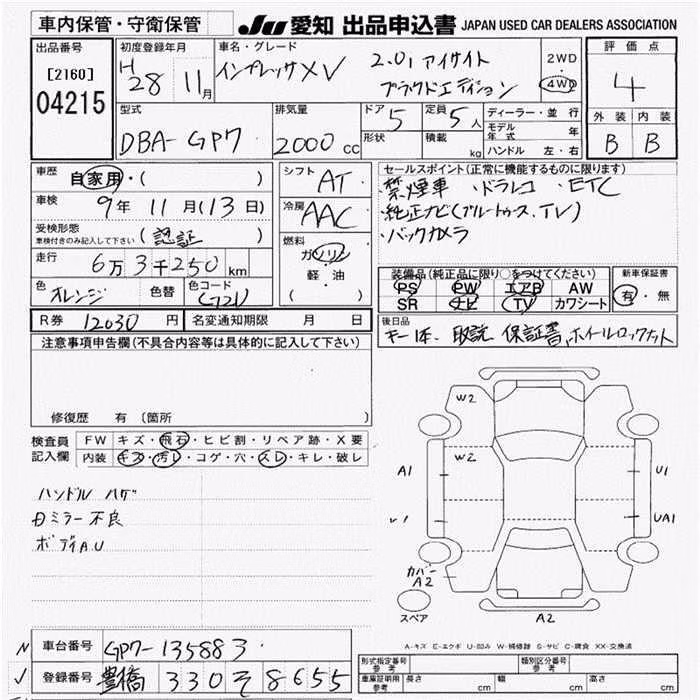 車内保管・守衛保管 JU 愛知 出品申込書 JAPAN USED CAR DEALERS ASSOCIATION
出品番号
[2160]
04215
初度登録年月
H28 11月
車名・グレード
インプレッサXV 2.0i アイサイト
プラウドエディション
2WD
4WD
評価点
4
外装 内装
B B
型式
DBA-GP7
排気量
2000 CC
ドア 5
定員 5人
形状
積載 kg
ディーラー・並行
モデル年式 年
ハンドル 左・右
車歴
自家用・( )
車検
9年11月(13日)
受検形態
車検付きのみ記入して下さい (認証)
走行
6万3千250km
色
オレンジ
色替
色コード
シフト AT
冷房 AAC
燃料
ガソリン
軽・油
( )
セールスポイント(正常に機能するものに限ります)
・禁煙車・ドラレコ・ETC
・純正ナビ(ブルートゥース、TV)
・バックカメラ
装備品(純正品に限り○をつけてください)
PS PW エアB AW
SR ナビ TV カワシート
新車保証書
有・無
R券 12030円 名変通知期限 月 日
後日品
キー1本、取説、保証書、ホイールロックナット
注意事項申告欄(不具合内容等は具体的に記入して下さい)
修復歴 有(箇所
検査員記入欄
FW キズ・飛石・ヒビ割・リペア跡・X要
内装 キズ・汚レ・コゲ・穴・スレ・キレ・破レ
ハンドル ハゲ
ミラー不良
ボディA.U
W2
W2
A1
U1
UA1
カバー
A2
スペア
A2
A-キズ E-エクボ U-凹み W-補修跡 S-サビ C-腐食 XX-交換済
車台番号 GP7-135883
登録番号 豊橋 330 そ 8655
型式指定番号 参考
類別区分番号 参考
車庫証明用 参考 長さ cm 幅 cm 高さ cm